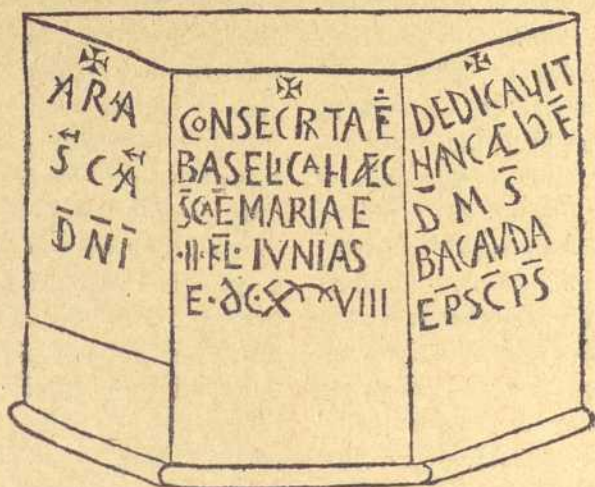 ✠
ARA
S̄ CĀ
D̄ N̄Ī
✠
CONSECRATA Ē
BASELICA HÆC
S̄CAE MARIAE
·II·K̄L· IVNIAS
E·DC·X VIII
✠
DEDICAVIT
HANC Æ DĒ
D̄ M S̄
BACAVDA
EP̄SC̄PS̄